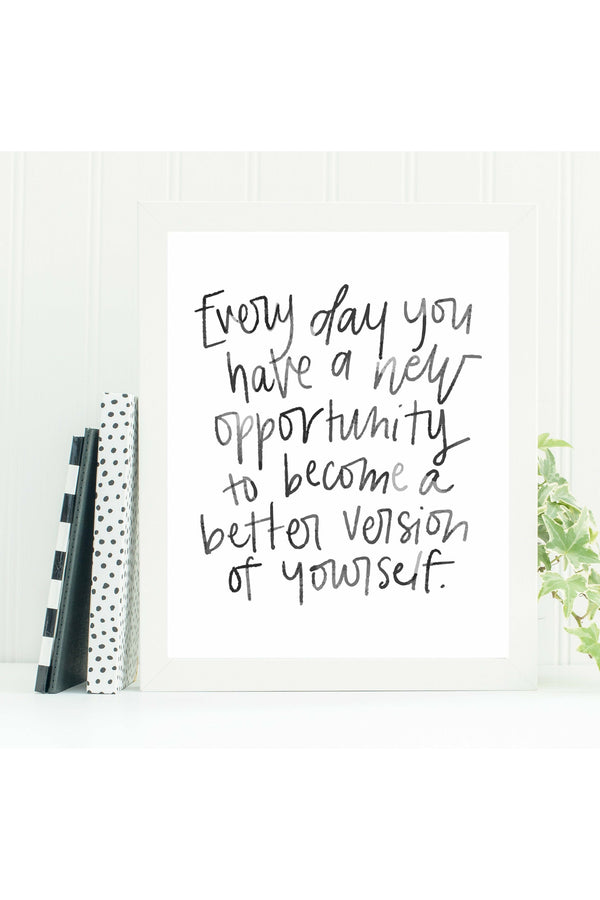 Every day you
have a new
opportunity
to become a
better version
of yourself.